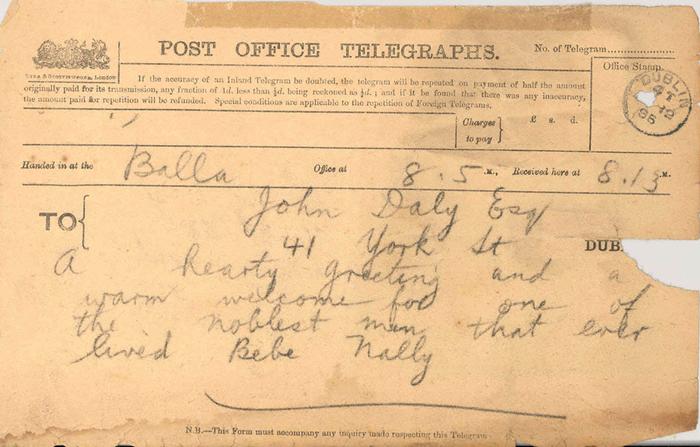 POST OFFICE TELEGRAPHS.
No. of Telegram
Office Stamp.
If the accuracy of an Inland Telegram be doubted, the telegram will be repeated on payment of half the amount
originally paid for its transmission, any fraction of 1d. less than ½d. being reckoned as ½d.; and if it be found that there was any inaccuracy,
the amount paid for repetition will be refunded. Special conditions are applicable to the repetition of Foreign Telegrams.
DUBLIN
12
96
Charges to pay
£ s. d.
Handed in at the Balla Office at 8.5 M., Received here at 8.13 M.
TO
John Daly Esq
41 York St
DUB
A hearty greeting and a
warm welcome for one of
the noblest men that ever
lived Bebe Nally
N.B.—This Form must accompany any inquiry made respecting this Telegram.